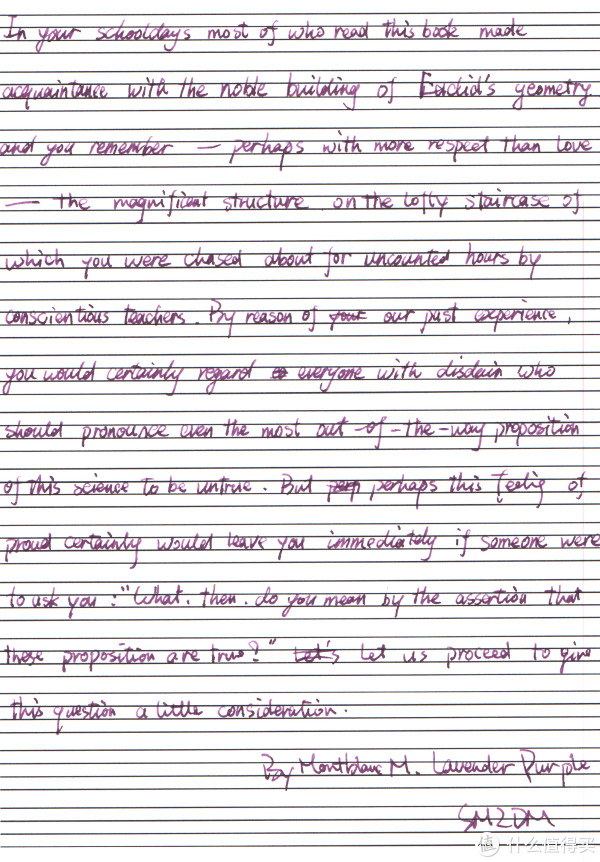 In your schooldays most of who read this book made
acquaintance with the noble building of Euclid's geometry
and you remember — perhaps with more respect than love
— the magnificent structure. on the lofty staircase of
which you were chased about for uncounted hours by
conscientious teachers. By reason of our past experience,
you would certainly regard everyone with disdain who
should pronounce even the most out-of-the-way proposition
of this science to be untrue. But perhaps this feelig of
proud certainly would leave you immediately if someone were
to ask you: "What. then. do you mean by the assertion that
these proposition are true?" let us proceed to give
this question a little consideration.
By Montblanc M. Lavender Purple
SMZDM
什么值得买